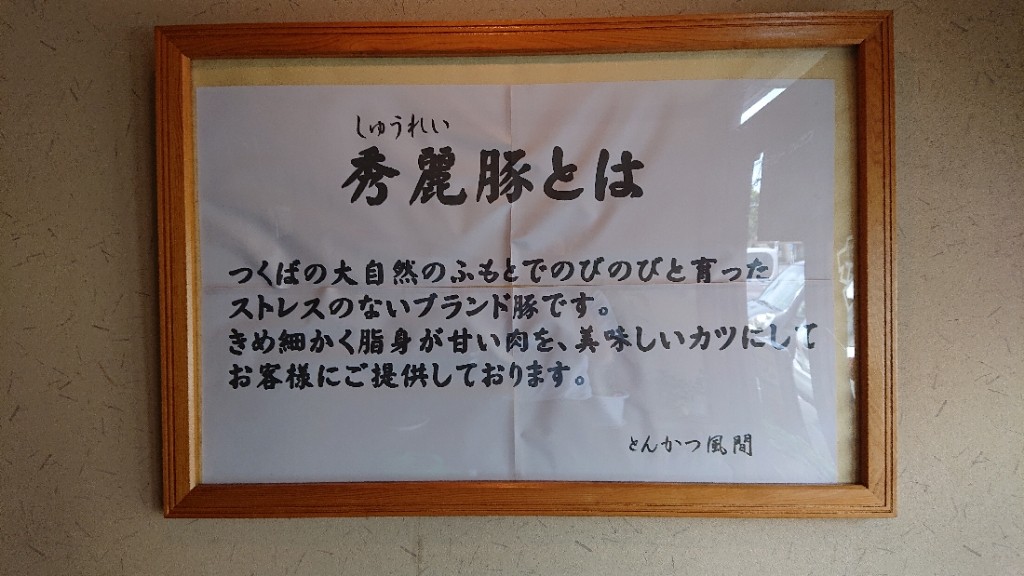 しゅうれい
秀麗豚とは
つくばの大自然のふもとでのびのびと育った
ストレスのないブランド豚です。
きめ細かく脂身が甘い肉を、美味しいカツにして
お客様にご提供しております。
とんかつ風間